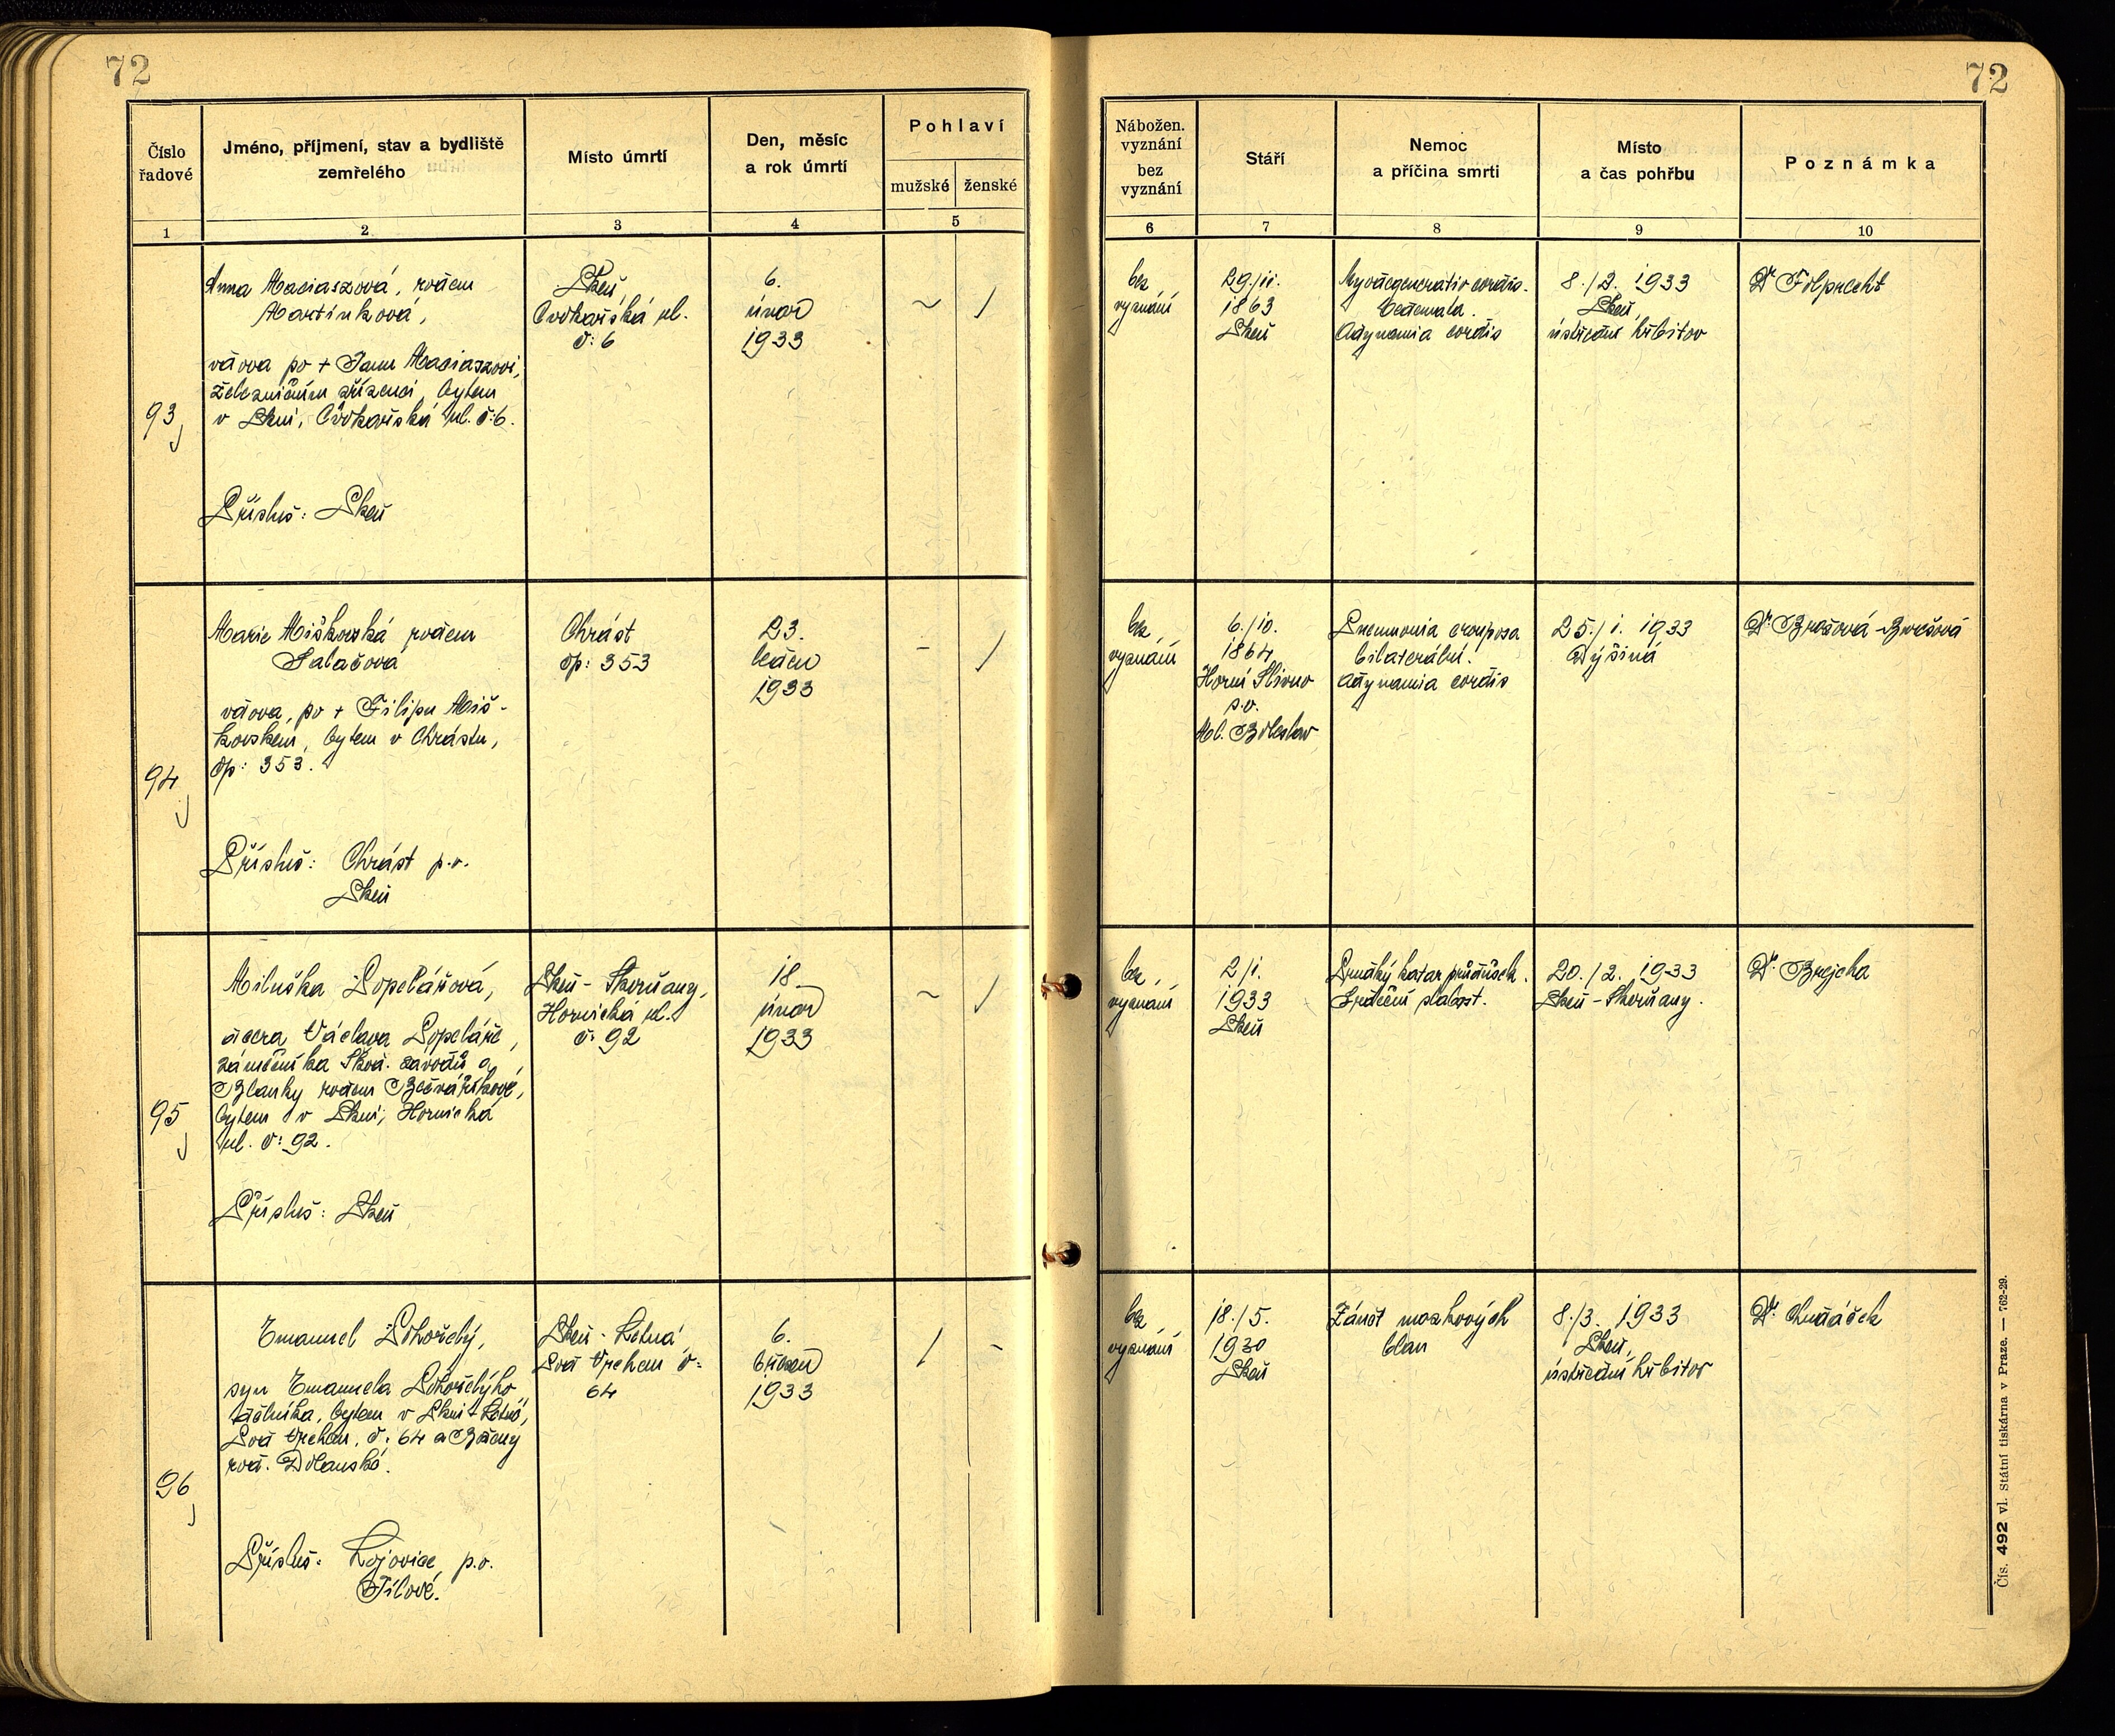 72
Číslo
řadové
Jméno, příjmení, stav a bydliště
zemřelého
Místo úmrtí
Den, měsíc
a rok úmrtí
Pohlaví
mužské
ženské
1
2
3
4
5
93
Anna Maciaszová, rozen
Martínková,
vdova po + Janu Maciaszovi,
železničním zřízenci, bytem
v Plzni, Cvokařská ul. č: 6.
Přísluš: Plzeň
Plzeň,
Cvokařská ul.
č: 6
6.
únor
1933
94
Marie Miškovská rozen
Salačová
vdova, po + Filipu Miš-
kovském, bytem v Chrástu,
čp: 353.
Přísluš: Chrást p.o.
Plzeň
Chrást
čp: 353
23.
leden
1933
95
Miluška Popelářová,
dcera Václava Popeláře,
zámečníka Škod. závodů a
Blanky rozen
bytem v Plzni, Hornická
ul. č: 92.
Přísluš: Plzeň
Plzeň - Skvrňany,
Hornická ul.
č: 92
18.
únor
1933
96
Emanuel Pokorný,
syn Emanuela
dělníka, bytem v Plzni - Letné,
Pod Vrchem, č: 64 a
roz. Dolanské.
Přísluš: Lojovice, p.o.
Jílové.
Plzeň - Letná
Pod Vrchem č:
64
6.
březen
1933
72
Nábožen.
vyznání
bez
vyznání
Stáří
Nemoc
a příčina smrti
Místo
a čas pohřbu
Poznámka
6
7
8
9
10
bez
vyznání
29./11.
1863
Plzeň
Myodegeneratio cordis.
Oedemata.
Adynamia cordis
8./2. 1933
Plzeň,
ústřední hřbitov
Dr Folprecht
bez
vyznání
6./10.
1864
Horní Slivno
p.o.
Ml. Boleslav
Pneumonia crouposa
bilaterální.
Adynamia cordis
25./1. 1933
Dýšiná
Dr.
bez
vyznání
2/1.
1933
Plzeň
Prudký katar průdušek.
Srdeční slabost.
20./2. 1933
Plzeň - Skvrňany.
Dr. Brejcha
bez
vyznání
18./5.
1930
Plzeň
Zánět mozkových
blan
8./3. 1933
Plzeň,
ústřední hřbitov
Dr. Chudáček
Čís. 492 vl. Státní tiskárna v Praze. — 762-29.